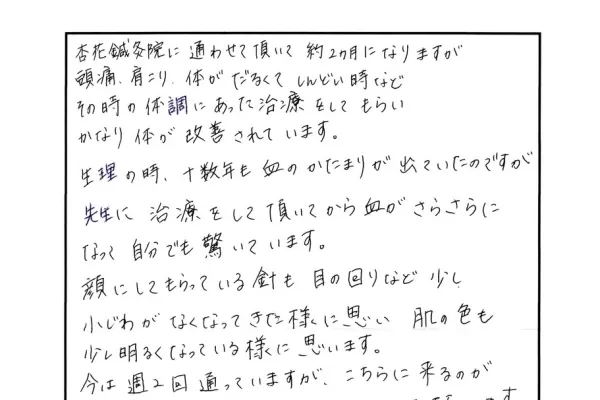 杏花鍼灸院に通わせて頂いて約2ヵ月になりますが
頭痛、肩こり、体がだるくてしんどい時など
その時の体調にあった治療をしてもらい
かなり体が改善されています。
生理の時、十数年も血のかたまりが出ていたのですが
先生に治療をして頂いてから血がさらさらに
なって自分でも驚いています。
顔にしてもらっている針も目の回りなど少し
小じわがなくなってきた様に思い肌の色も
少し明るくなっている様に思います。
今は週2回通っていますが、こちらに来るのが